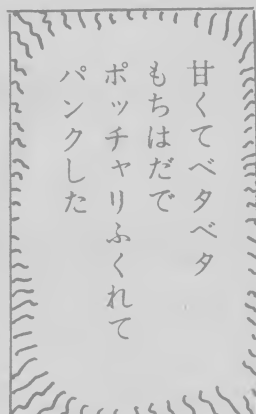 甘くてベタベタ
もちはだで
ポッチャリふくれて
パンクした